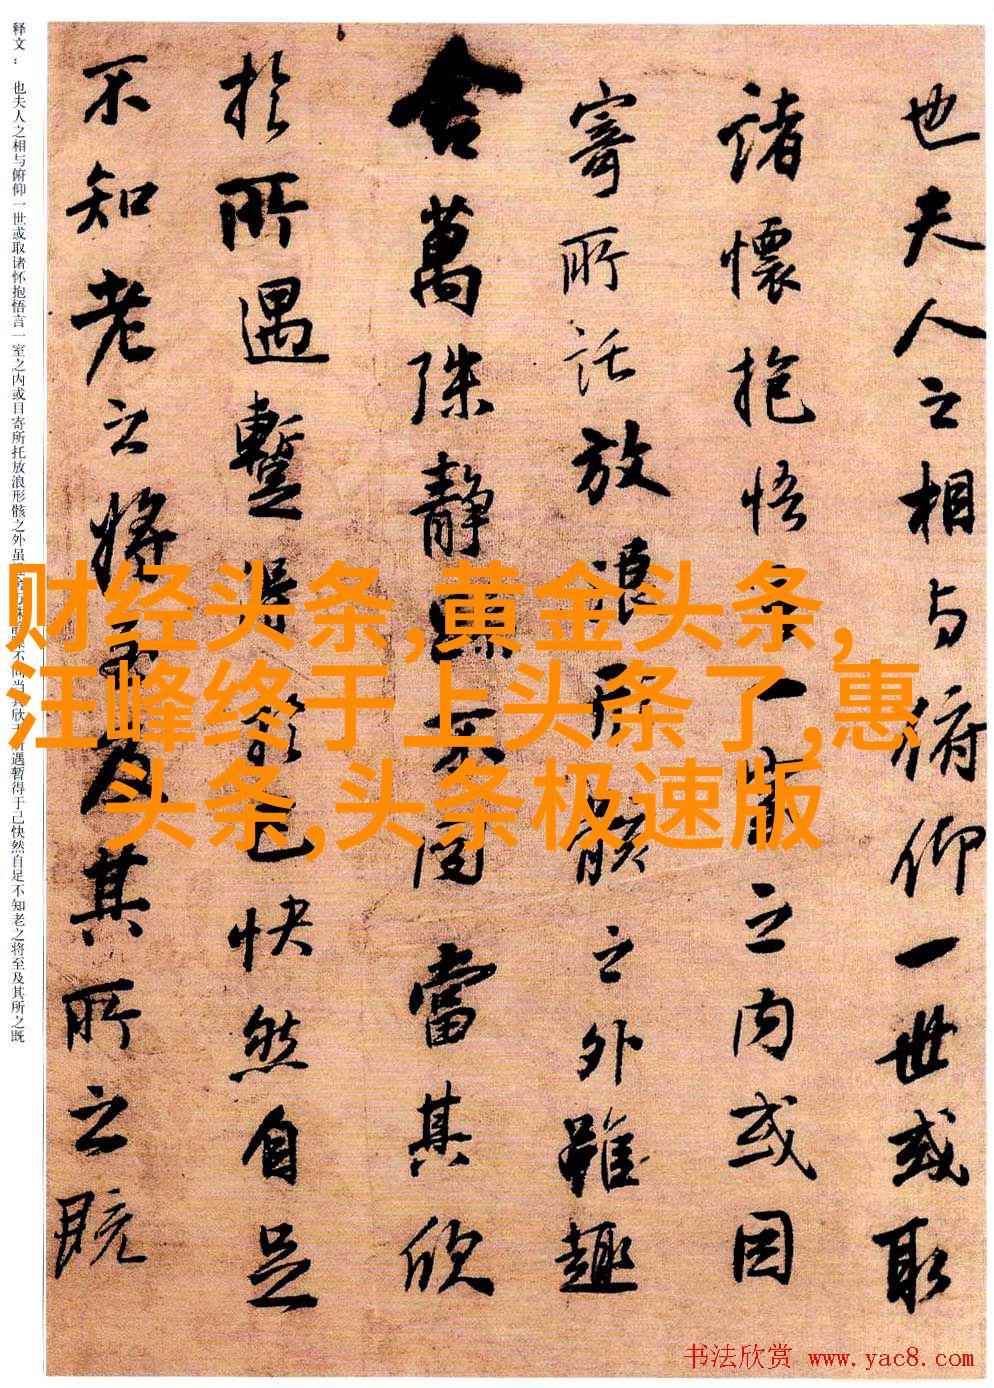 也夫人之相与俯仰一世或取
諸懷抱悟言一室之内或因
寄所託放浪形骸之外雖趣
舍萬殊静躁不同當其欣
於所遇蹔得於己快然自足
不知老之将至及其所之既
释文： 也夫人之相与俯仰一世或取诸怀抱悟言一室之内或目寄所托放浪形骸之外虽 不同当其欣 所遇暂得于己快然自足不知老之将至及其所之既
财经头条,黄金头条,
汪峰终于上头条了,惠
头条,头条极速版
书法欣赏 www.yac8.com